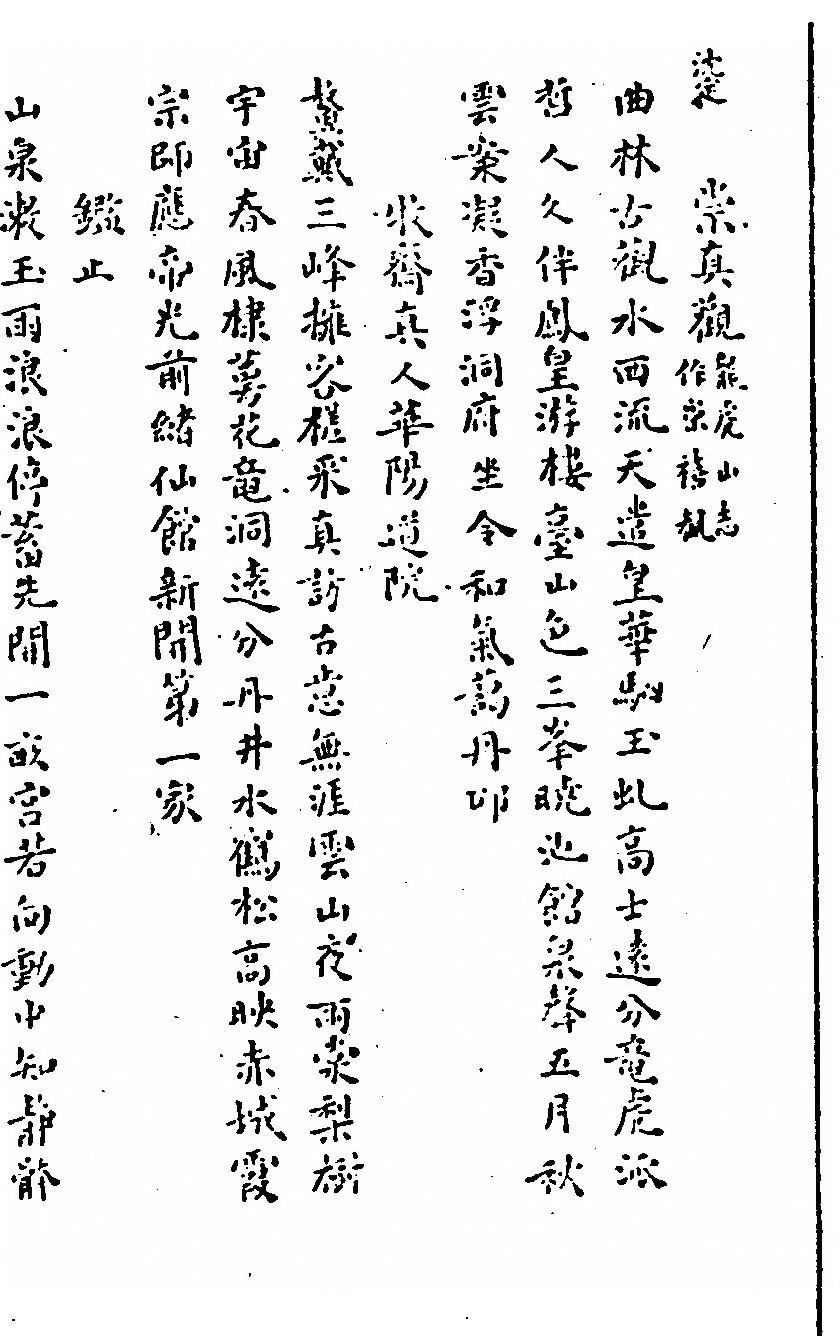 崇真觀龍虎山志作崇禧觀
曲林古觀水西流天遣皇華駟玉虬高士遠分竜虎派
哲人久伴鳳皇游樓臺山色三峯曉池館泉聲五月秋
雲案凝香浮洞府坐令和氣藹丹邱
牧齋真人華陽道院
鰲戴三峰擁客槎采真訪古意無涯雲山夜雨棠梨樹
宇宙春風棣萼花竜洞遠分丹井水鶴松高映赤城霞
宗師應帝光前緒仙館新開第一家
鑑止
山泉漱玉雨浪浪停蓄先開一畝宫若向動中知靜